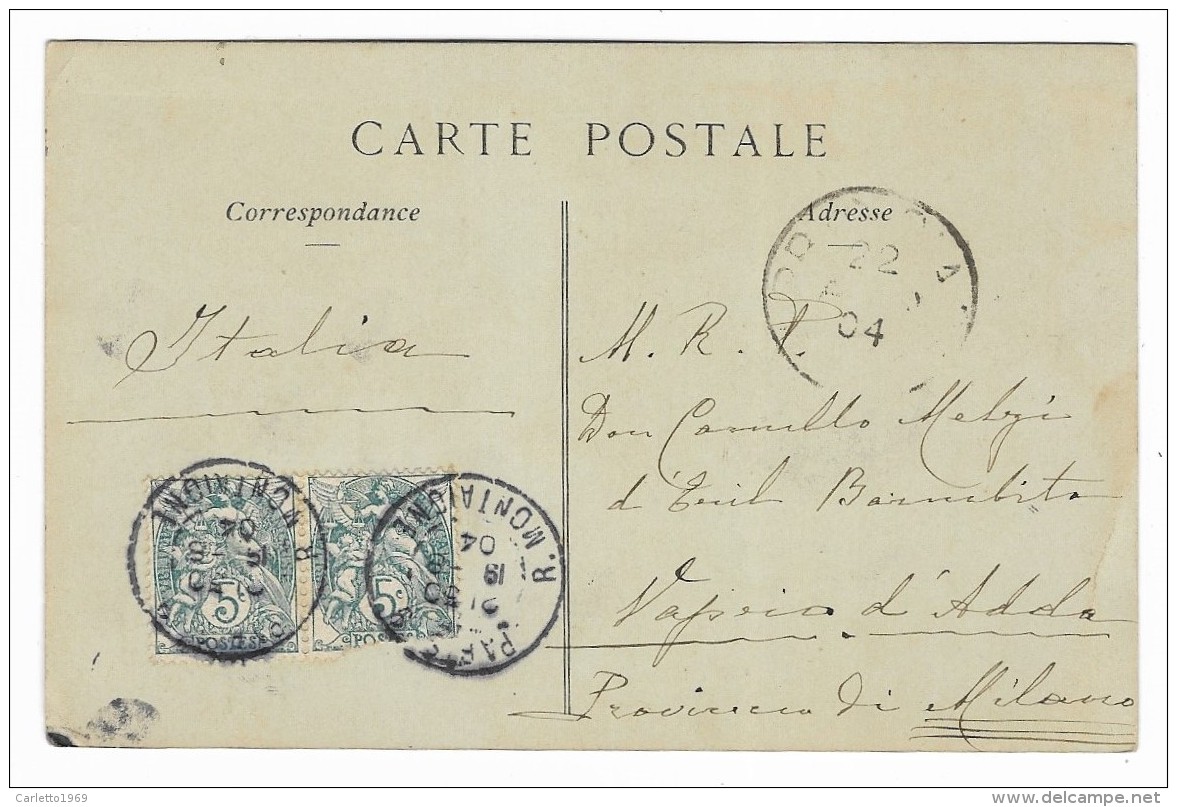 CARTE POSTALE
Correspondance
Adresse
22
04
Italia
M. R. P.
Don Camillo Melzi
d'Eril Barnabita
Vaprio d'Adda
Provincia di Milano
R. MONTAIGNE
04
R. MONTAIGNE
04
19
21
5
5c
POSTES
POSTES
Carletto1969
delcampe.net